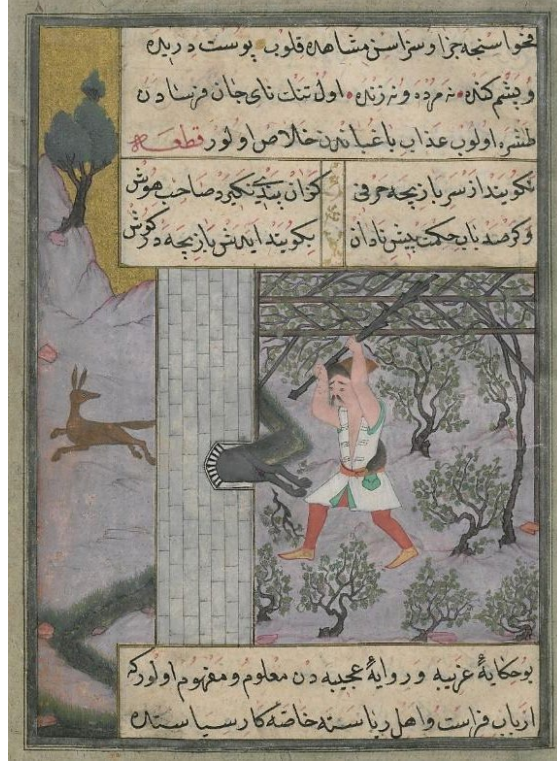 فحواسنجه جزا و سزاسن مشاهده قلوب پوست دریده
و پشم کنده نه مرده و نه زنده اول تنك نای جان فرسادن
طشره اولوب عذاب باغباندن خلاص اولور قطعه
نگویند از سر بازیچه حرفی کزان پندی نگیرد صاحب هوش
وگر صد باب حکمت پیش نادان بگویند ایدش بازیچه در گوش
بو حکایهٔ غریبه و روایهٔ عجیبه دن معلوم و مفهوم اولور که
ارباب فراست و اهل ریاسته خاصه کار سیاستده